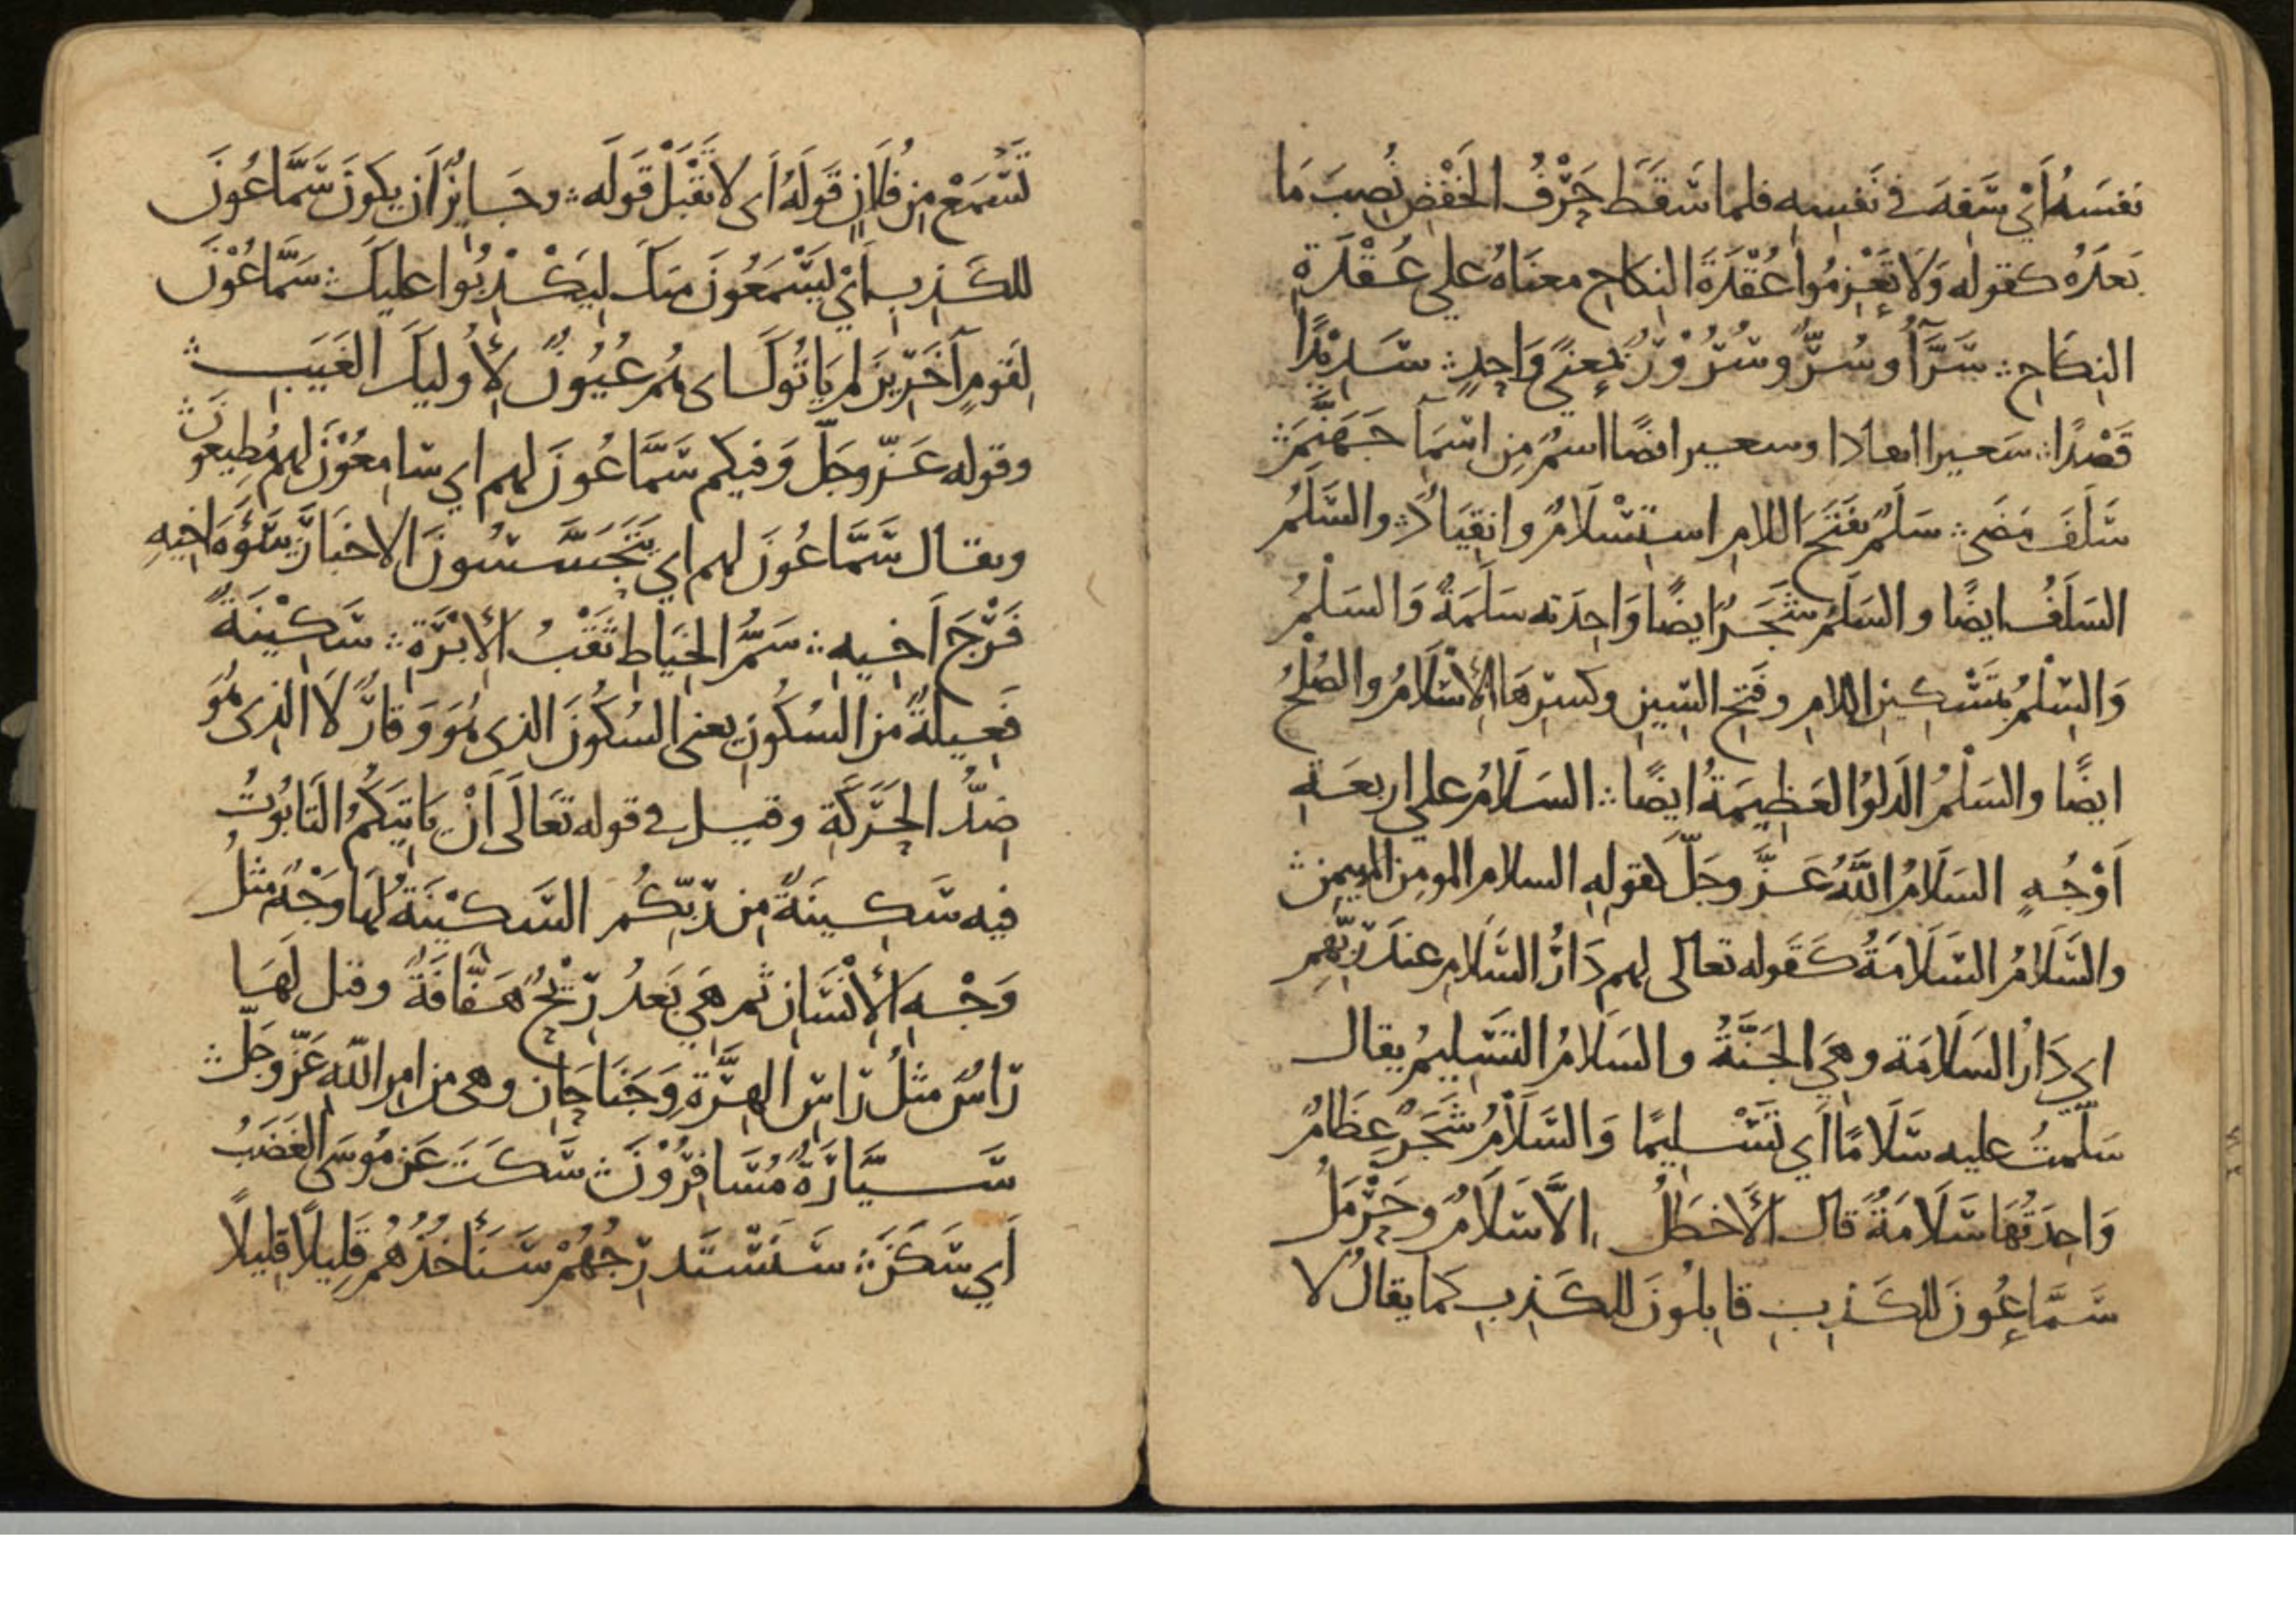 نفسَهُ أَيْ سَفِهَ في نَفسِهِ فلما سَقَطَ حَرْفُ الخَفْضِ نُصِبَ مَا
بَعدَهُ كقوله وَلَا تَعْزِمُوا عُقْدَةَ النِكَاحِ معنَاهُ علي عُقْدَةِ
النِكَاحِ ∴ سَرَّآُ وسُرٌّ وسُرُوْرٌ بمَعنًي وَاحِدٍ ∴ سَدِيْدًا
قَصْدًا ∴ سَعيرا ايعادا وسعير ايضًا اسمٌ مِن اسمَآ جَهَنَّمَ ∴
سَلَفَ مَضَى ∴ سَلَمٌ بفَتَحَ اللامِ استِسْلَامٌ وانقِيَادٌ ∴ والسَّلَمُ
السَلَفُ ايضًا والسَلَمُ شَجَرٌ ايضًا وَاحِدَته سَلَمَةٌ وَالسَلْمُ
وَالسِلْمُ بتَسْكِينِ اللامِ وفَتحِ السِينِ وكسرِهَا الإِسْلَامُ والصُلْحُ
ايضًا والسَلْمُ الدَلوُ العَظِيمَةُ ايضًا ∴ السَلَامُ علي اربعَةِ
اَوْجُهٍ السَلَامُ اللَّهُ عَزَّ وجَلَّ كقولِهِ السلام المومِن المهيمِن ∴
والسَّلَامُ السَّلَامَةُ كَقَوله تعالى لهم دَارُ السَّلَامِ عندَ رَبِّهِم
اي دَارُ السَلَامَة وهِيَ الجَنَّةُ والسَلَامُ التَسْلِيمُ يقال
سَلَّمتُ عليه سَلَامًا اَي تَسْلِيمًا وَالسَّلَامُ شَجَرٌ عِظَامٌ
وَاحِدَتُهَا سَلَامَةٌ قال الأَخطَلُ اِلَّا سَلَامٌ وحَرْمَلُ
سَمَّاعُونَ للكَذِبِ قابِلُونَ للكَذِبِ كَما يقالُ لا
تَسْمَعْ مِن فُلَانٍ قَولَهُ اَى لا تَقْبَلْ قَولَه ∴ وجَايِزٌ اَن يكونَ سَمَّاعُونَ
للكَذِبِ اَيْ يَسْمَعُونَ مِنكَ لِيَكْذِبُوا عليكَ ∴ سَمَّاعُوْنَ
لِقَومٍ آخَرِيْنَ لم يَاتُوكَ اى هُم عُيُونٌ لِأُوليكَ الغَيَبِ ∴
وقوله عَزّ وجَلَّ وَفيكم سَمَّاعُونَ لهم اي سامِعُوْنَ لهم مُطِيعون ∴
ويقال سَمَّاعُونَ لهم اي يَتَجَسَّسُونَ الاخبَارَ ∴ سَوْءَةَ اخِيهِ
فَرْجَ اَخِيهِ ∴ سَمِّ الخِيَاطِ ثَقْبُ الأبرَةِ ∴ سَكِيْنَةٌ
فَعِيلَةٌ من السُكُونِ يعني السُكُونَ الذى هُوَ وَقارٌ لَا الذِى هُوَ
ضِدُّ الحَرَكَةِ وقيل في قوله تَعَالَى اَنْ يَاتِيَكُمُ التَابُوْتُ
فيهِ سَكِينَةٌ مِن رَبِّكُم السَّكيْنَةُ لهَا وَجْهٌ مثلُ
وَجْهِ الأِنْسَانِ ثم هِيَ بَعدُ رِيْحٌ هَفَّافَةٌ وقيل لَهَا
رَاسٌ مثلُ رَاسِ الهِرَّةِ وَجَنَاحَانِ وهى من امرِ اللّهِ عَزّ وجَلَّ ∴
سَيَّارَةٌ مُسَافِرُوْنَ ∴ سَكَتَ عَن مُوسَى الغَضَبُ
اَي سَكَنَ ∴ سَنَسْتَدرِجُهُمْ سَنَأخُذُهُم قَلِيلًا قَلِيلًا